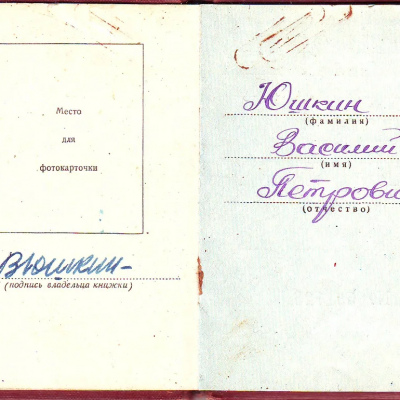 Место
для
фотокарточки
ВЮшкин
(подпись владельца книжки)
Юшкин
(фамилия)
Василий
(имя)
Петрови
(отчество)